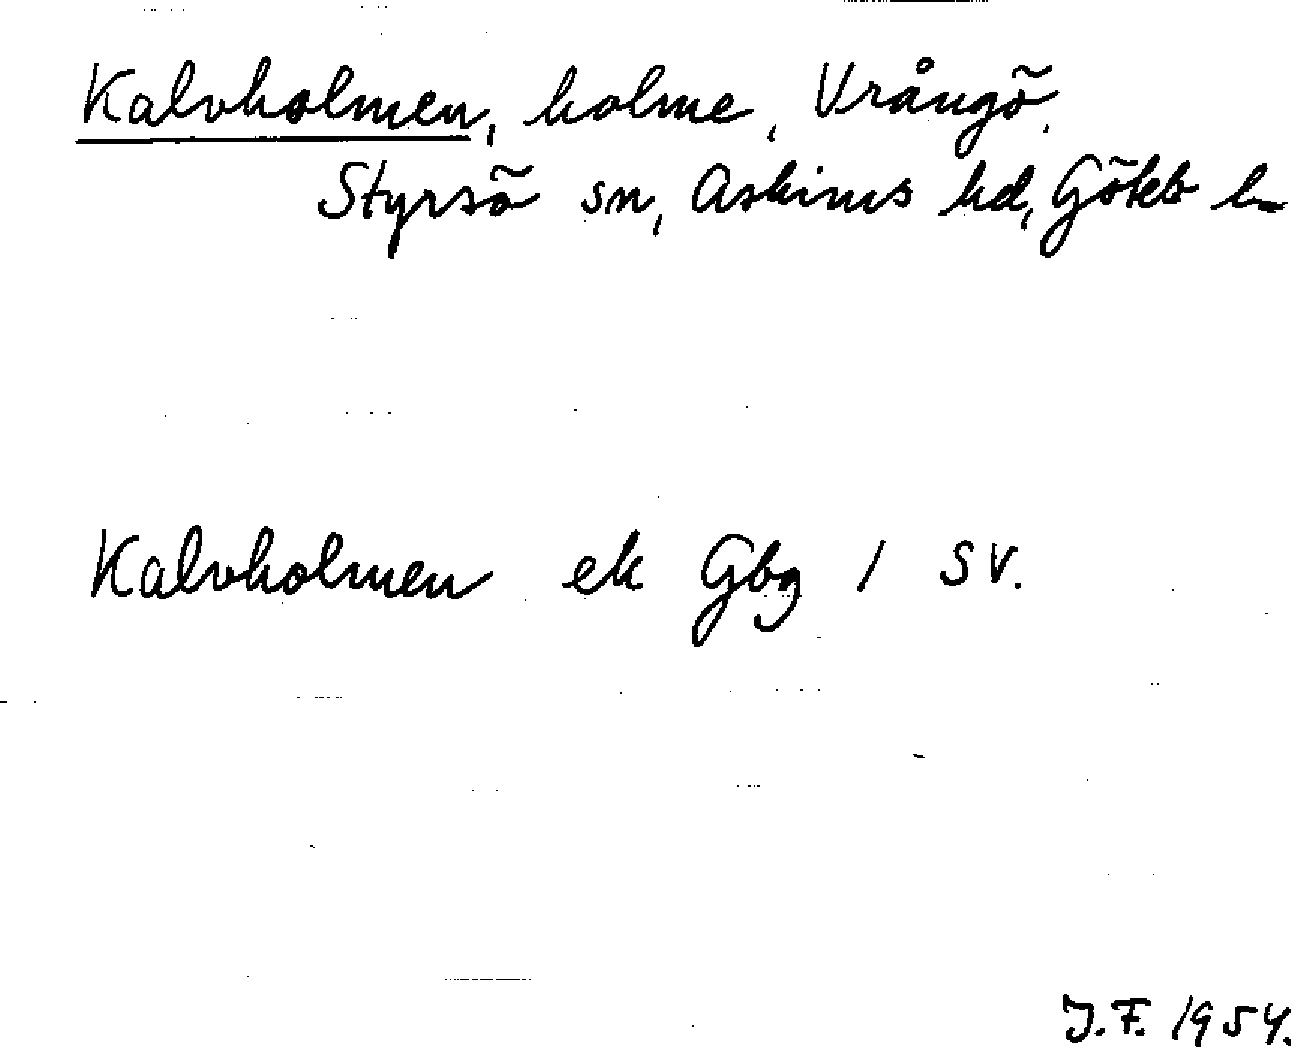 Kalvholmen, holme, Vrångö,
Styrsö sn, Askims hd, Götebs l
Kalvholmen ek Gbg 1 SV.
J.F. 1954.